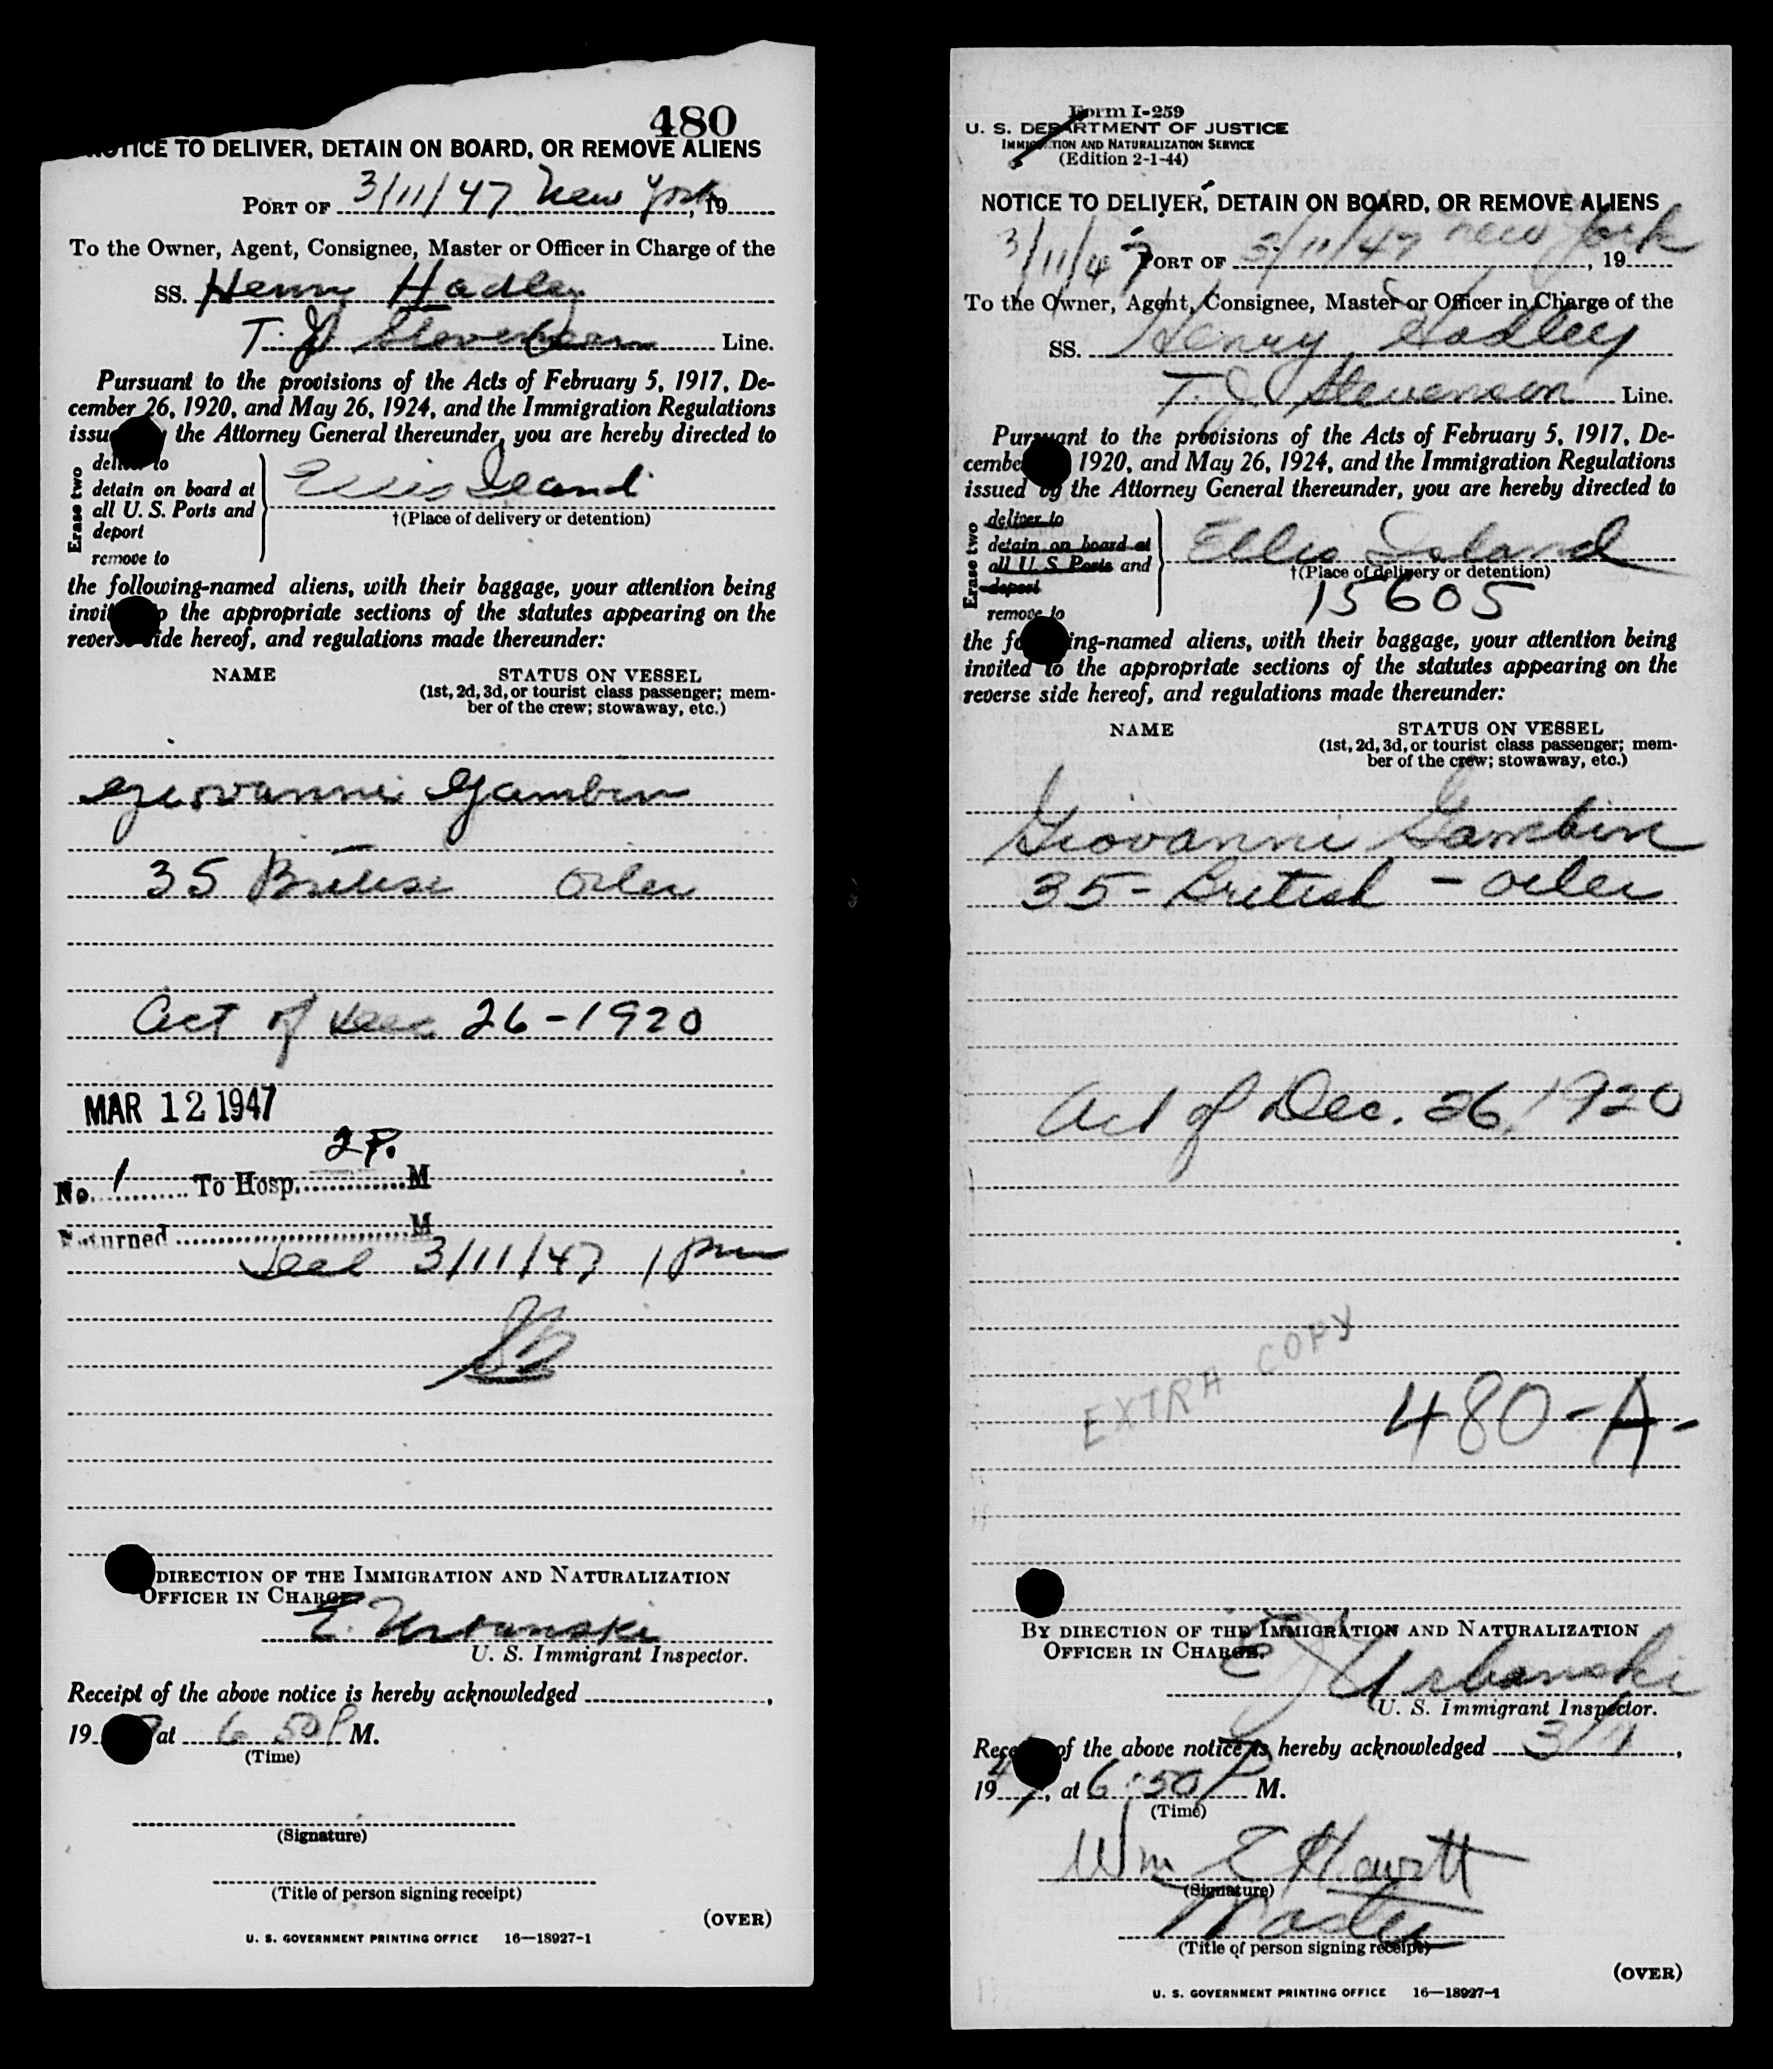 480
NOTICE TO DELIVER, DETAIN ON BOARD, OR REMOVE ALIENS
PORT OF 3/11/47 New York, 19
To the Owner, Agent, Consignee, Master or Officer in Charge of the
SS. Henry Hadley
T. J. Stevenson Line.
Pursuant to the provisions of the Acts of February 5, 1917, De-
cember 26, 1920, and May 26, 1924, and the Immigration Regulations
issu the Attorney General thereunder, you are hereby directed to
Erase two
deliver to
detain on board at
all U. S. Ports and
deport
remove to
Ellis Island
†(Place of delivery or detention)
the following-named aliens, with their baggage, your attention being
invit the appropriate sections of the statutes appearing on the
reverse side hereof, and regulations made thereunder:
NAME STATUS ON VESSEL
(1st, 2d, 3d, or tourist class passenger; mem-
ber of the crew; stowaway, etc.)
Giovanni Gambin
35 British Oiler
Act of Dec 26-1920
MAR 12 1947
2 P.
No. 1 To Hosp. M
Returned M
3/11/47 1 pm
DIRECTION OF THE IMMIGRATION AND NATURALIZATION
OFFICER IN CHARGE.
E. Urbanski
U. S. Immigrant Inspector.
Receipt of the above notice is hereby acknowledged ,
19 7 at 6 50 P M.
(Time)
(Signature)
(Title of person signing receipt)
(OVER)
U. S. GOVERNMENT PRINTING OFFICE 16—18927-1
Form I-259
U. S. DEPARTMENT OF JUSTICE
IMMIGRATION AND NATURALIZATION SERVICE
(Edition 2-1-44)
NOTICE TO DELIVER, DETAIN ON BOARD, OR REMOVE ALIENS
3/11/47 PORT OF 3/11/47 New York, 19
To the Owner, Agent, Consignee, Master or Officer in Charge of the
SS. Henry Hadley
T. J. Stevenson Line.
Pursuant to the provisions of the Acts of February 5, 1917, De-
cembe 1920, and May 26, 1924, and the Immigration Regulations
issued by the Attorney General thereunder, you are hereby directed to
Erase two
deliver to
detain on board at
all U. S. Ports and
deport
remove to
Ellis Island
†(Place of delivery or detention)
15605
the fo ing-named aliens, with their baggage, your attention being
invited to the appropriate sections of the statutes appearing on the
reverse side hereof, and regulations made thereunder:
NAME STATUS ON VESSEL
(1st, 2d, 3d, or tourist class passenger; mem-
ber of the crew; stowaway, etc.)
Giovanni Gambin
35 - British - oiler
Act of Dec. 26, 1920
EXTRA COPY
480-A-
BY DIRECTION OF THE IMMIGRATION AND NATURALIZATION
OFFICER IN CHARGE.
E J Urbanski
U. S. Immigrant Inspector.
Rece of the above notice is hereby acknowledged 3/11,
1947, at 6:50 P M.
(Time)
Wm E Hewitt
(Signature)
Master
(Title of person signing receipt)
(OVER)
U. S. GOVERNMENT PRINTING OFFICE 16—18927-1